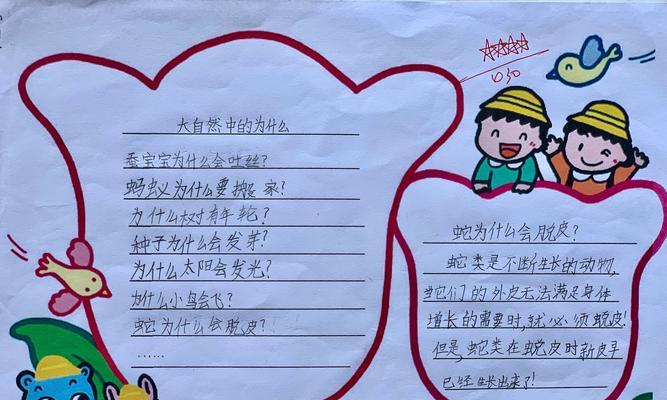 大自然中的为什么
蚕宝宝为什么会吐丝?
蚂蚁为什么要搬家?
为什么树有年轮?
种子为什么会发芽?
为什么太阳会发光?
为什么小鸟会飞?
蛇为什么会脱皮?
……
蛇为什么会脱皮?
蛇类是不断生长的动物,
当它们的外皮无法满足身体
增长的需要时,就必须蜕皮!
但是,蛇类在蜕皮时新皮早
已经生长出来了!